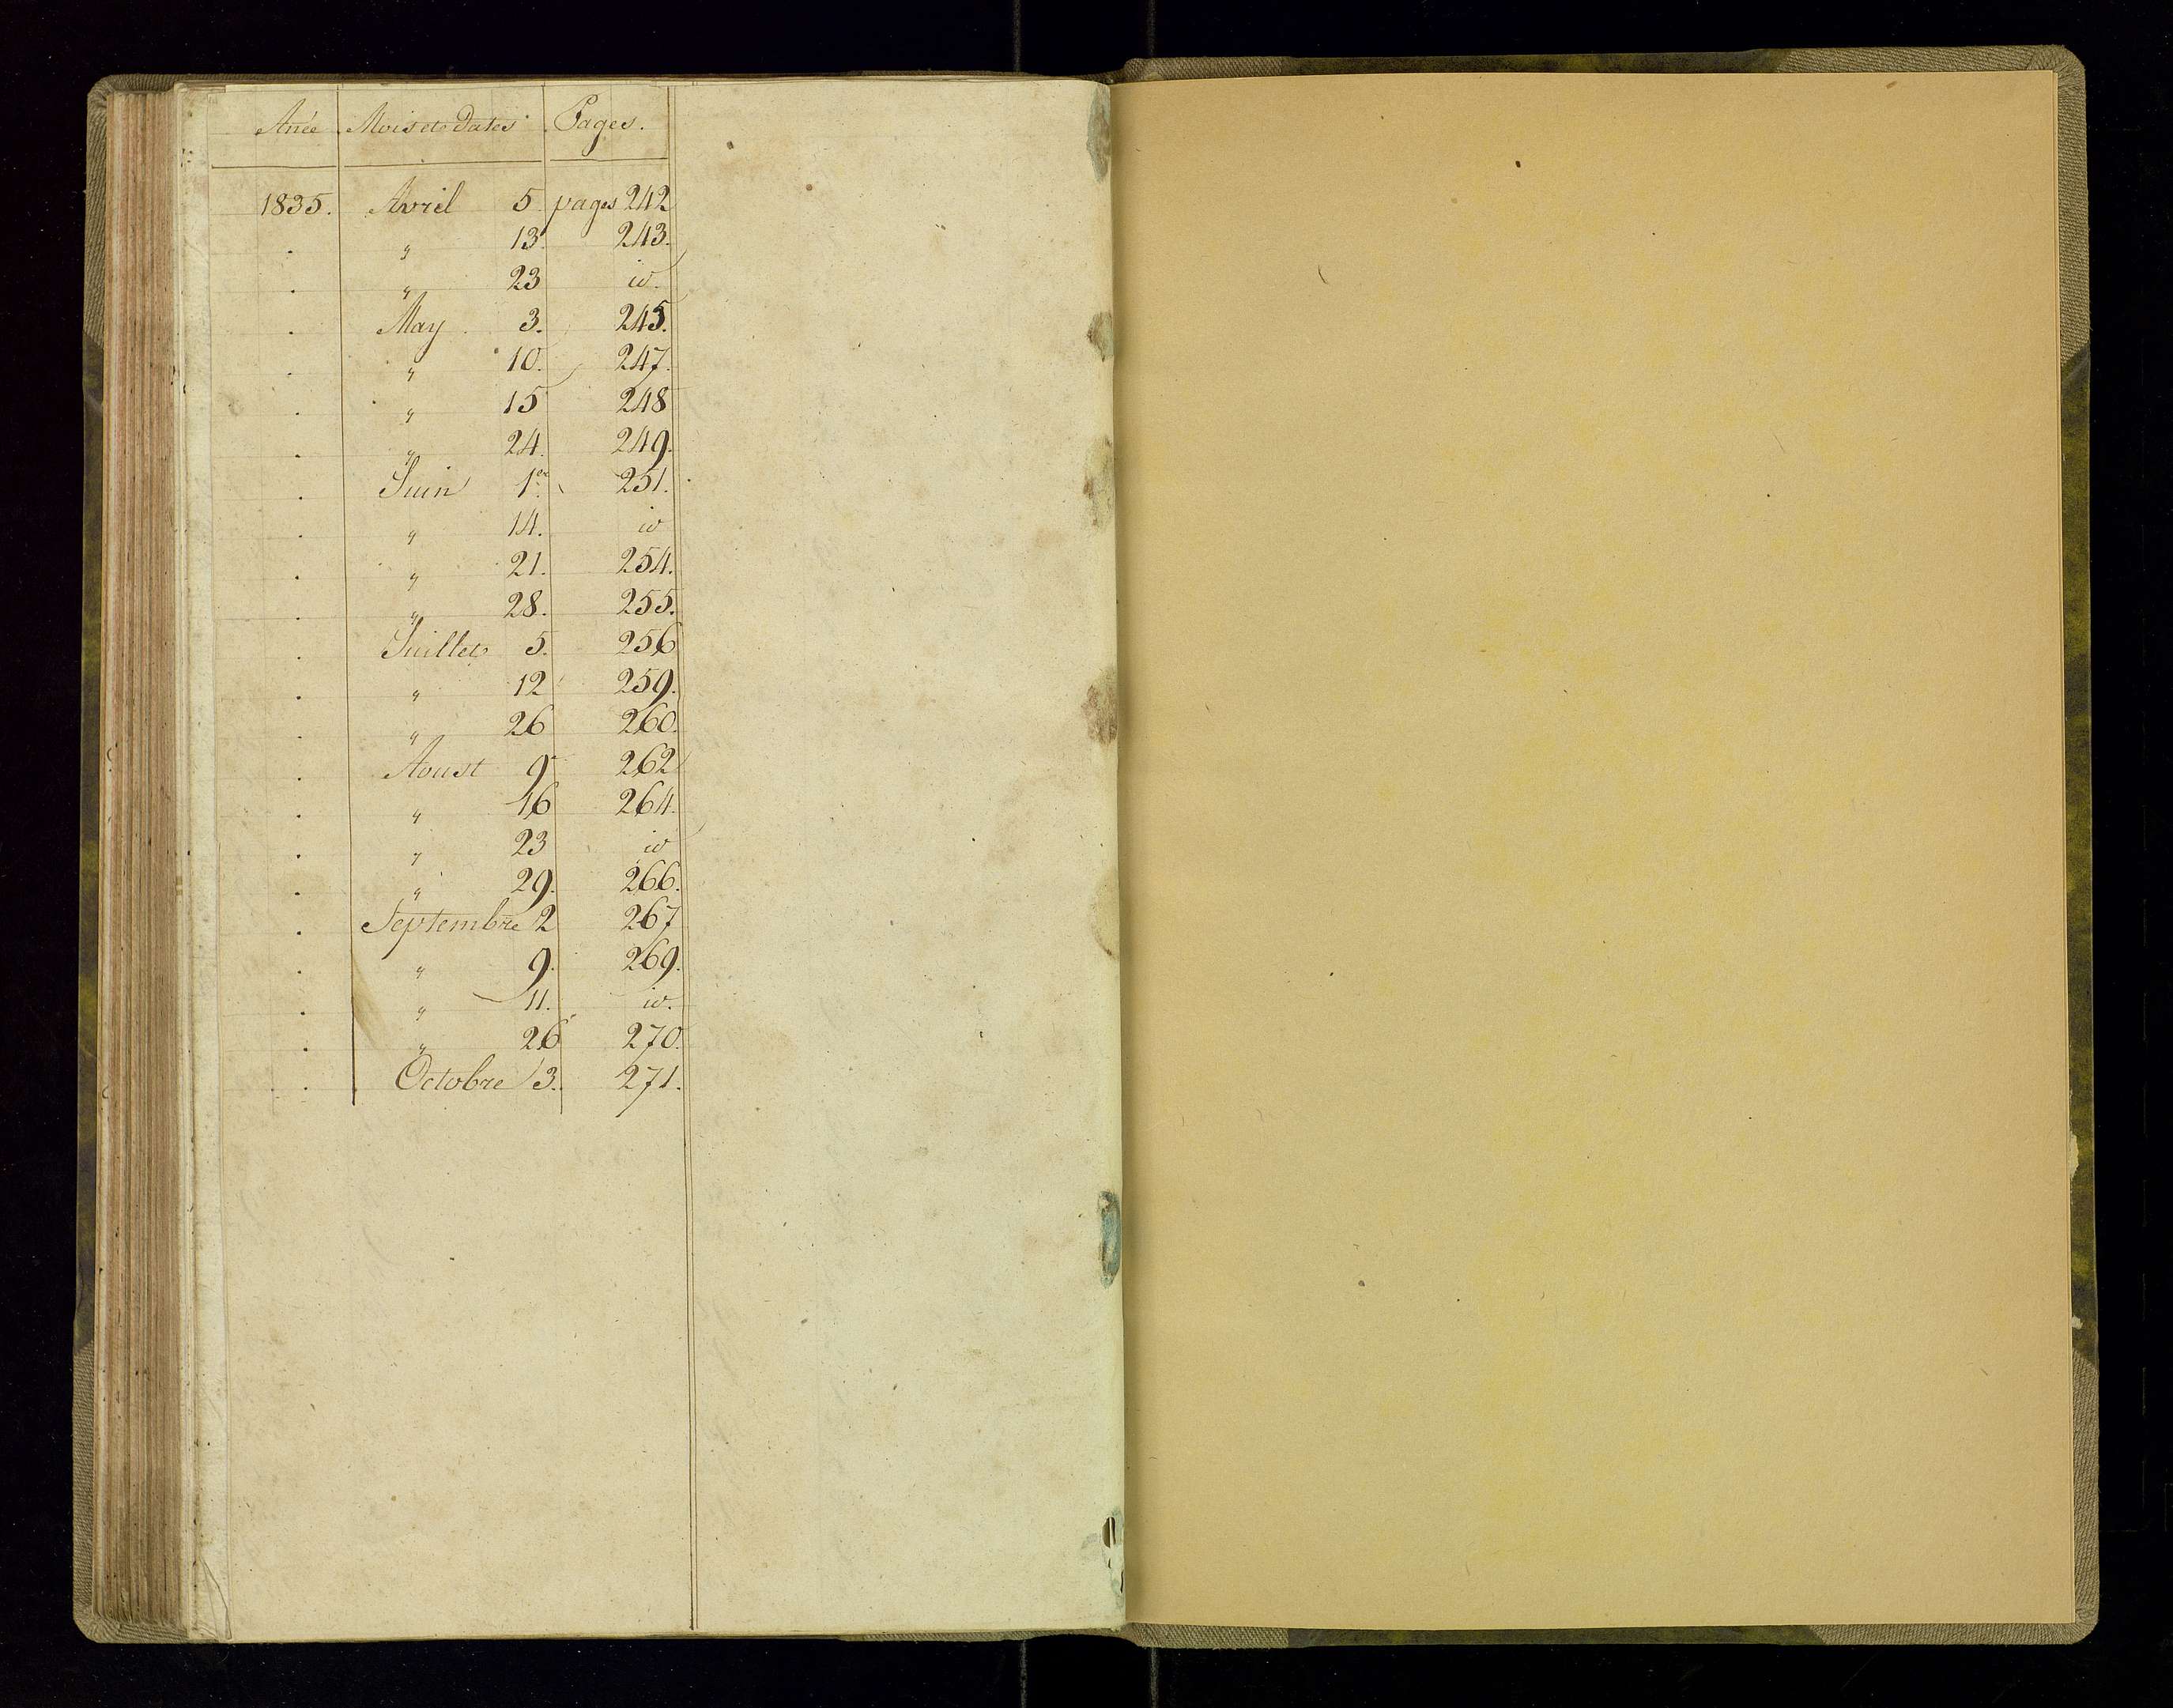 Anée Mois et Dates Pages.
1835. Avril 5. pages 242
. " 13. 243.
. " 23 id.
. May 3. 245.
. " 10. 247.
. " 15 248
. " 24. 249.
. Juin 1er 251.
. " 14. id
. " 21. 254.
. " 28. 255.
. Juillet 5. 256
. " 12 259.
. " 26 260.
. Aoust 9 262
. " 16 264.
. " 23 id
. " 29. 266.
. Septembre 2 267
. " 9. 269.
. " 11. id.
. " 26 270.
. Octobre 3. 271.